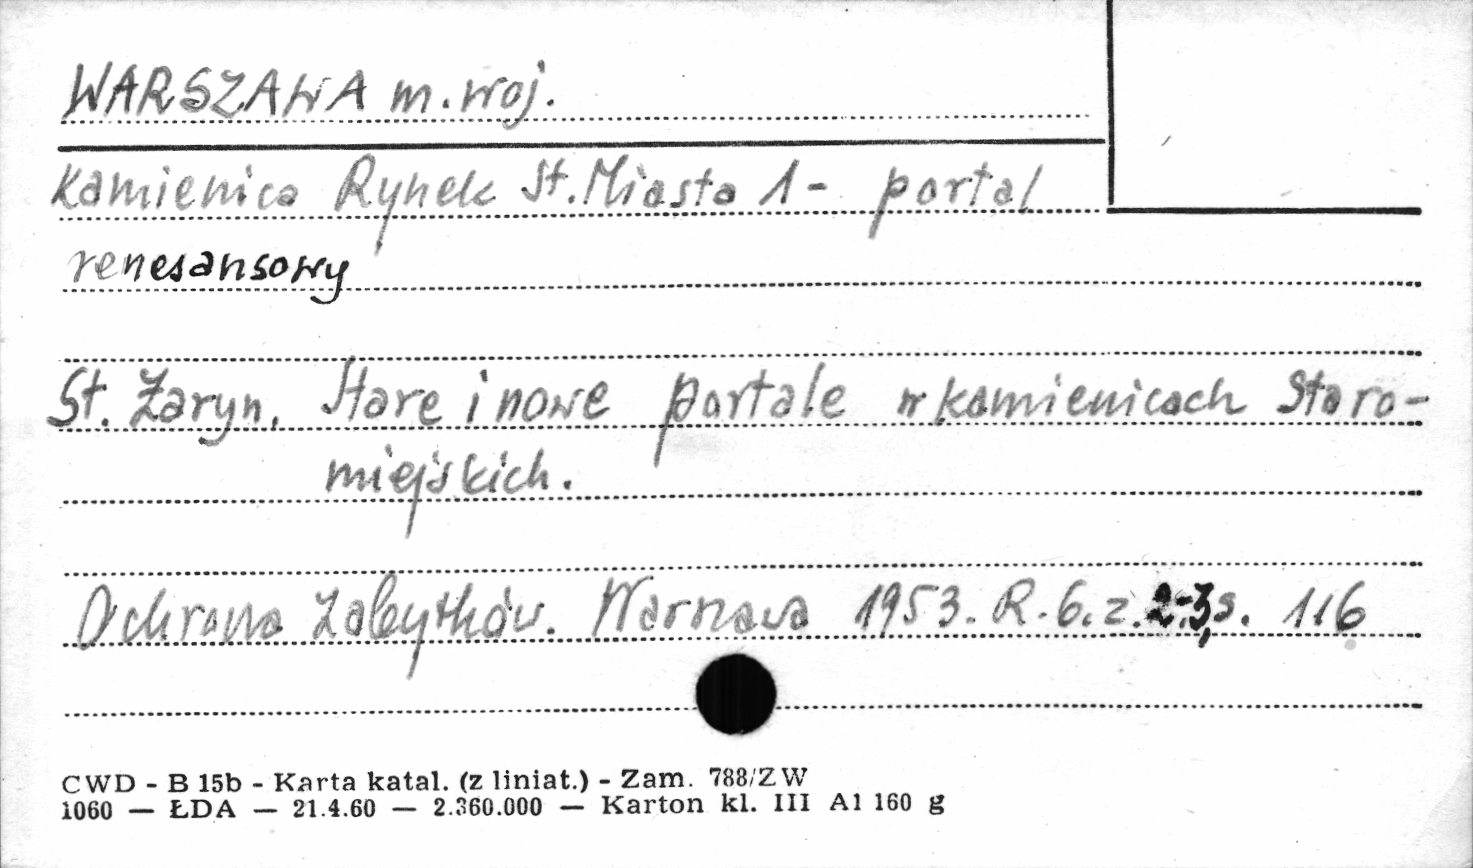 WARSZAWA m. woj.
Kamienica Rynek St. Miasta 1 - portal
renesansowy
St. Żaryn, Stare i nowe portale w kamienicach Staro-
miejskich.
Ochrona Zabytków. Warszawa 1953. R. 6. z. 2-3, s. 116
CWD - B 15b - Karta katal. (z liniat.) - Zam. 788/ZW
1060 — ŁDA — 21.4.60 — 2.360.000 — Karton kl. III A1 160 g